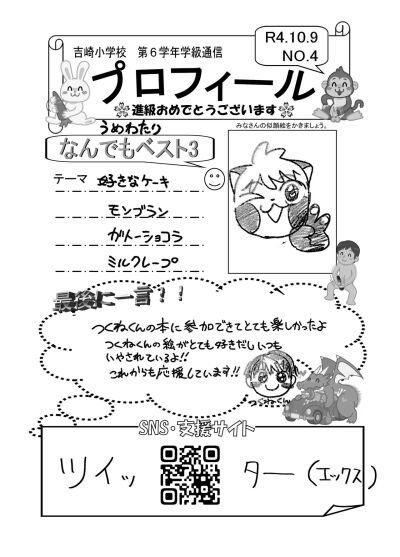 R4.10.9
NO.4
吉崎小学校 第6学年学級通信
プロフィール
進級おめでとうございます
うめわたり
なんでもベスト3
みなさんの似顔絵をかきましょう。
テーマ 好きなケーキ
モンブラン
ガトーショコラ
ミルクレープ
最後に一言!!
つくねくんの本に参加できてとても楽しかったよ
つくねくんの絵がとても好きだしいつも
いやされているよ!!
これからも応援しています!!
つくねくん
SNS・支援サイト
ツイッター(エックス)